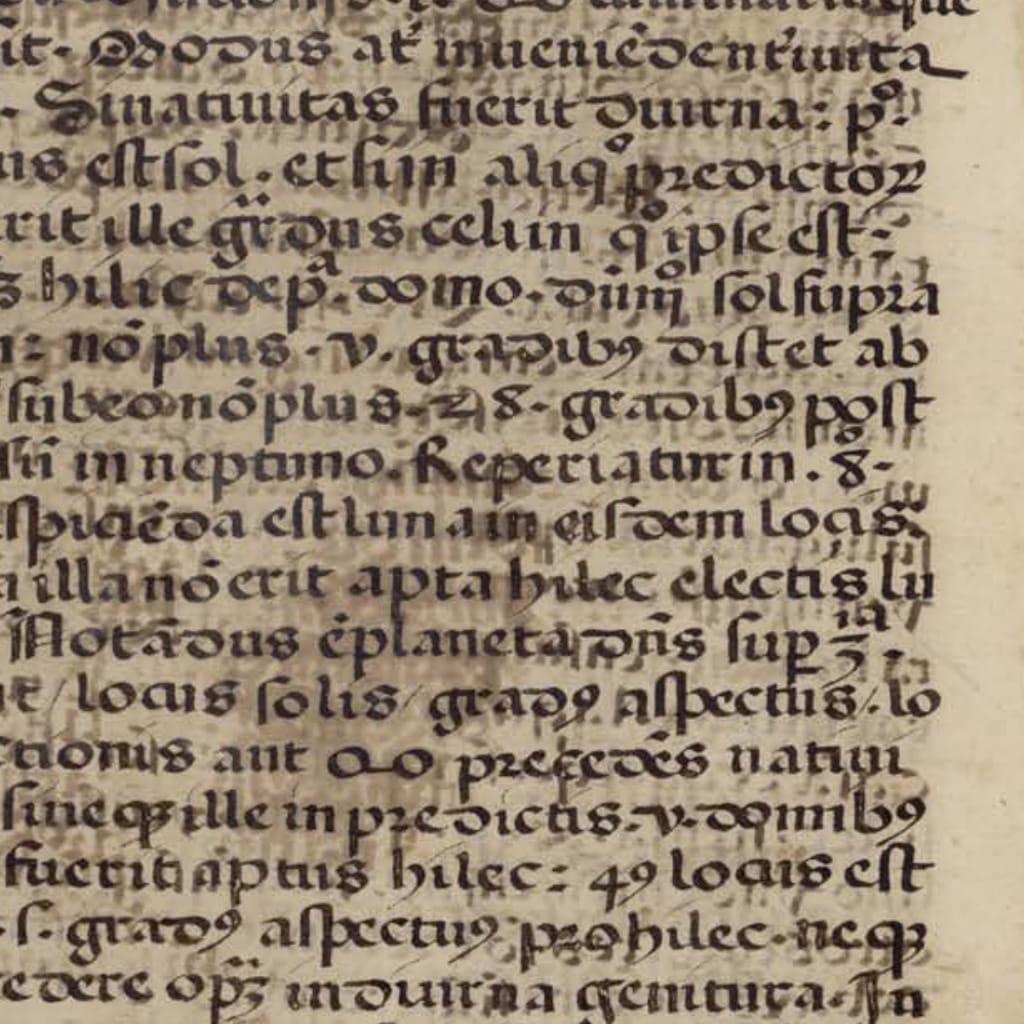 it. Modus at᷑ inueniēdent᷑iuita
. Sinatiuitas fuerit diurna: pᵒ.
us est sol. et si in aliqᵒ predictoꝝ
rit ille gr̈dus celi in qᵒ ipse est:
hilic dep̄ᵃ. domo. diiiiᵒ sol supra
: nō plus. v. gradibꝰ distet ab
sub eo nō plus. 28. gradibꝰ post
in neptuno. Reperiatur in. 8ᵒ.
spiciēda est luna in eisdem locis
illa nō erit apta hilec electis lu
Notādus ē planeta dn̄s sup 3ⁱᵃ.
ut / locus solis / gradꝰ aspectus /. lo
ctionis aut ☍ precedēs natiui
siue qꝫ ille in predictis. v. domibꝰ
fuerit aptus hilec: 4ꝰ locus est
. s. gradꝰ aspectuꝰ pro hilec. neqꝫ
edere opꝫ in diurna genitura. In